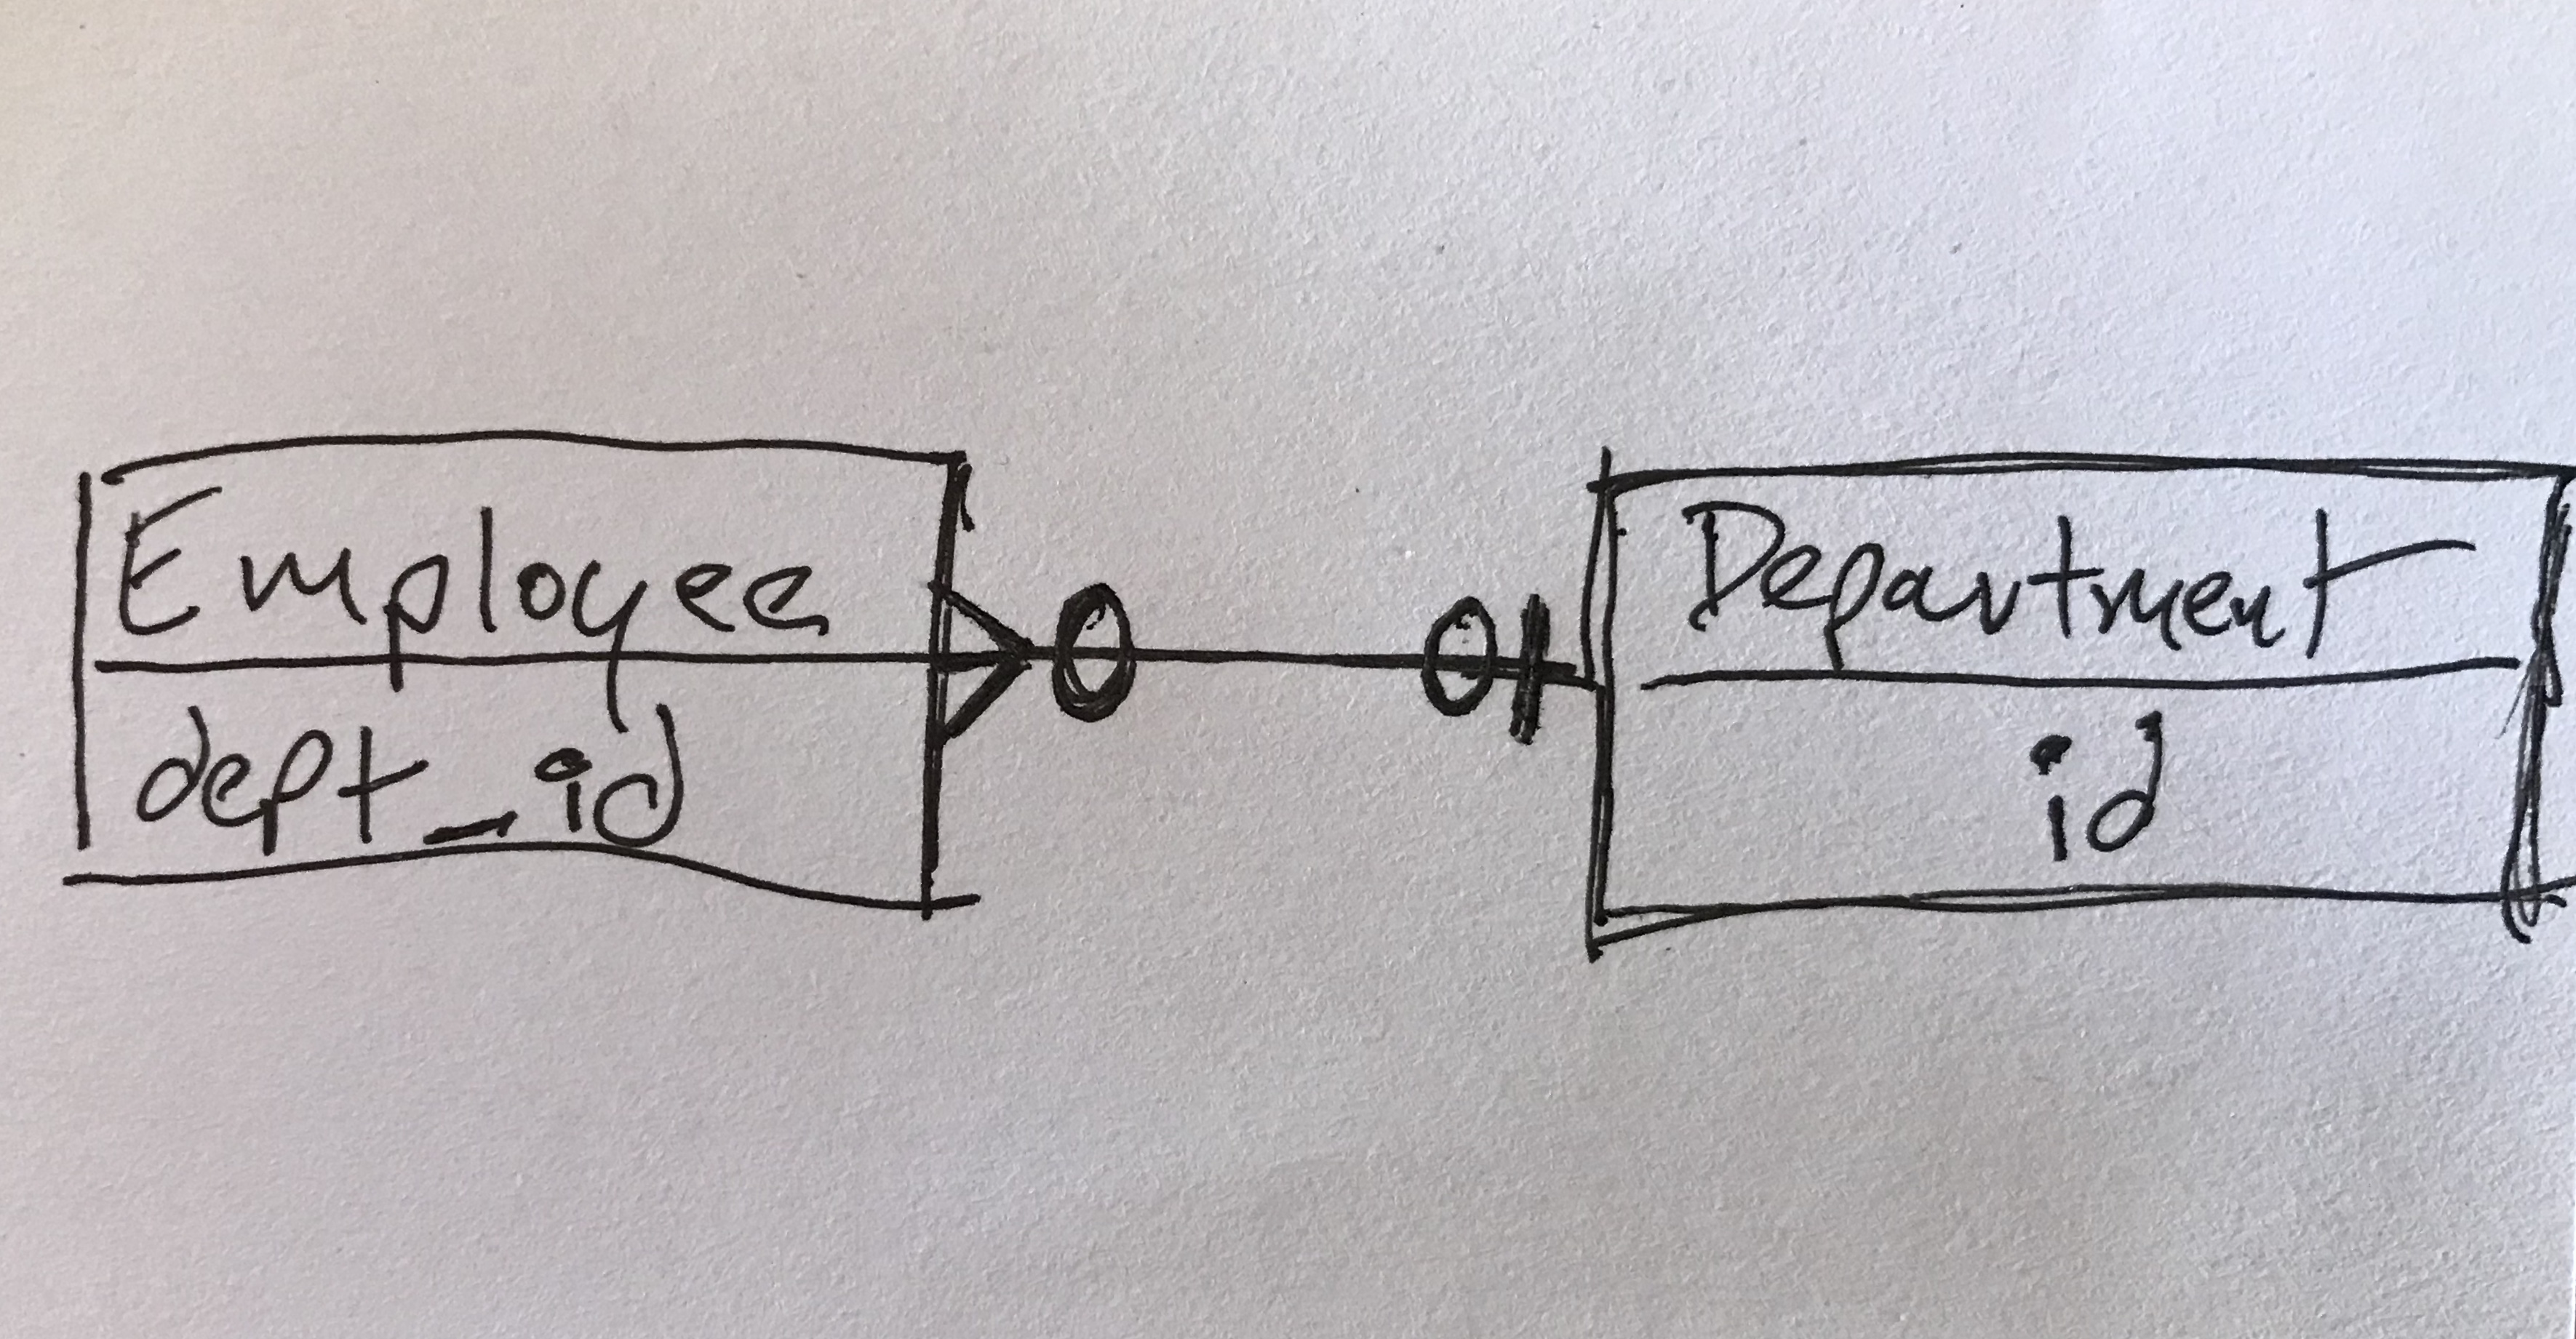 Employee
dept_id
Department
id